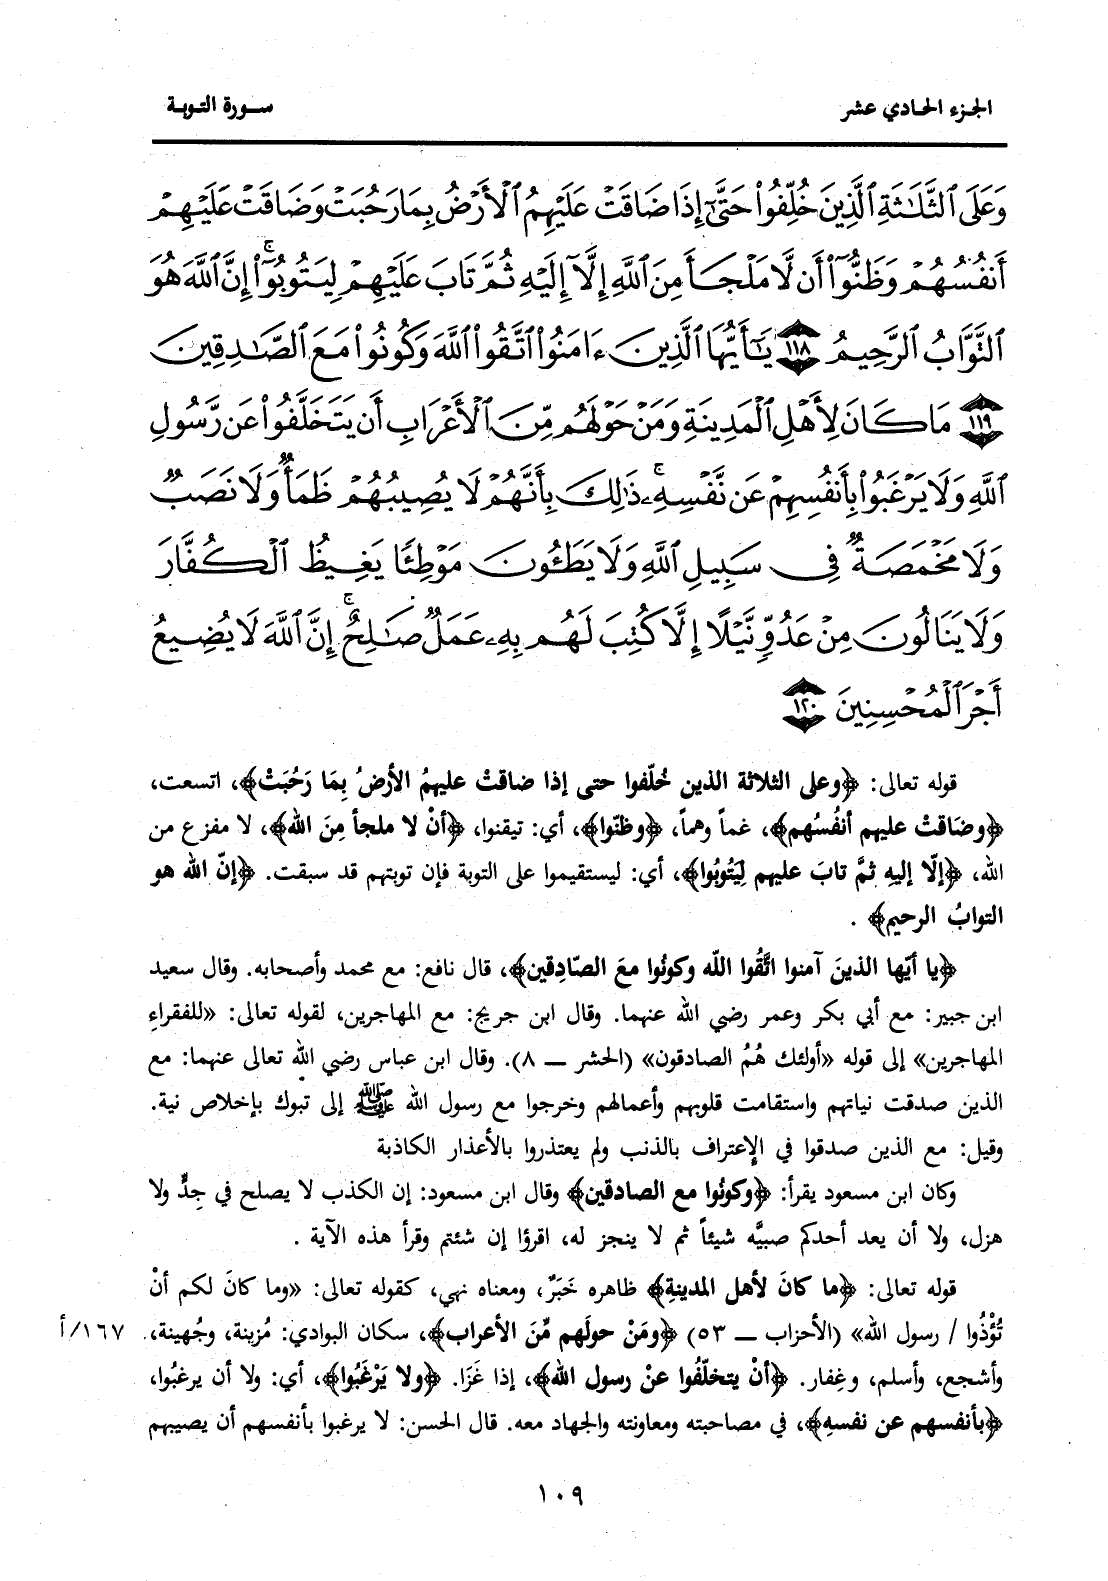 الجزء الحادي عشر
سورة التوبة
وَعَلَى ٱلثَّلَٰثَةِ ٱلَّذِينَ خُلِّفُوا۟ حَتَّىٰٓ إِذَا ضَاقَتْ عَلَيْهِمُ ٱلْأَرْضُ بِمَا رَحُبَتْ وَضَاقَتْ عَلَيْهِمْ
أَنفُسُهُمْ وَظَنُّوٓا۟ أَن لَّا مَلْجَأَ مِنَ ٱللَّهِ إِلَّآ إِلَيْهِ ثُمَّ تَابَ عَلَيْهِمْ لِيَتُوبُوٓا۟ ۚ إِنَّ ٱللَّهَ هُوَ
ٱلتَّوَّابُ ٱلرَّحِيمُ ١١٨ يَٰٓأَيُّهَا ٱلَّذِينَ ءَامَنُوا۟ ٱتَّقُوا۟ ٱللَّهَ وَكُونُوا۟ مَعَ ٱلصَّٰدِقِينَ
١١٩ مَا كَانَ لِأَهْلِ ٱلْمَدِينَةِ وَمَنْ حَوْلَهُم مِّنَ ٱلْأَعْرَابِ أَن يَتَخَلَّفُوا۟ عَن رَّسُولِ
ٱللَّهِ وَلَا يَرْغَبُوا۟ بِأَنفُسِهِمْ عَن نَّفْسِهِۦ ۚ ذَٰلِكَ بِأَنَّهُمْ لَا يُصِيبُهُمْ ظَمَأٌ وَلَا نَصَبٌ
وَلَا مَخْمَصَةٌ فِى سَبِيلِ ٱللَّهِ وَلَا يَطَـُٔونَ مَوْطِئًا يَغِيظُ ٱلْكُفَّارَ
وَلَا يَنَالُونَ مِنْ عَدُوٍّ نَّيْلًا إِلَّا كُتِبَ لَهُم بِهِۦ عَمَلٌ صَٰلِحٌ ۚ إِنَّ ٱللَّهَ لَا يُضِيعُ
أَجْرَ ٱلْمُحْسِنِينَ ١٢٠
قوله تعالى: ﴿وعلى الثلاثة الذين خُلّفوا حتى إذا ضاقتْ عليهمُ الأرضُ بِمَا رَحُبَتْ﴾، اتسعت،
﴿وضَاقتْ عليهم أنفُسُهم﴾، غماً وهماً، ﴿وظنّوا﴾، أي: تيقنوا، ﴿أنْ لا ملجأ مِنَ الله﴾، لا مفزع من
الله، ﴿إلّا إليهِ ثمَّ تابَ عليهم لِيَتُوبُوا﴾، أي: ليستقيموا على التوبة فإن توبتهم قد سبقت. ﴿إنّ الله هو
التوابُ الرحيم﴾ .
﴿يا أيّها الذينَ آمنوا اتَّقُوا اللّه وكونُوا معَ الصّادِقين﴾، قال نافع: مع محمد وأصحابه. وقال سعيد
ابن جبير: مع أبي بكر وعمر رضي الله عنهما. وقال ابن جريج: مع المهاجرين، لقوله تعالى: «للفقراءِ
المهاجرين» إلى قوله «أولئك هُمُ الصادقون» (الحشر ــ ٨). وقال ابن عباس رضي الله تعالى عنهما: مع
الذين صدقت نياتهم واستقامت قلوبهم وأعمالهم وخرجوا مع رسول الله ﷺ إلى تبوك بإخلاص نية.
وقيل: مع الذين صدقوا في الإعتراف بالذنب ولم يعتذروا بالأعذار الكاذبة
وكان ابن مسعود يقرأ: ﴿وكونُوا مع الصادقين﴾ وقال ابن مسعود: إن الكذب لا يصلح في جِدٍّ ولا
هزل، ولا أن يعد أحدكم صبيَّه شيئاً ثم لا ينجز له، اقرؤا إن شئتم وقرأ هذه الآية .
قوله تعالى: ﴿ما كانَ لأهل المدينةِ﴾ ظاهره خَبَرٌ، ومعناه نهي، كقوله تعالى: «وما كانَ لكم أنْ
تُؤْذُوا / رسول الله» (الأحزاب ــ ٥٣) ﴿ومَنْ حولَهم مِّنَ الأعراب﴾، سكان البوادي: مُزينة، وجُهينة، ١٦٧/أ
وأشجع، وأسلم، وغِفار. ﴿أنْ يتخلّفُوا عنْ رسول الله﴾، إذا غَزَا. ﴿ولا يَرْغَبُوا﴾، أي: ولا أن يرغبُوا،
﴿بأنفسهم عن نفسهِ﴾، في مصاحبته ومعاونته والجهاد معه. قال الحسن: لا يرغبوا بأنفسهم أن يصيبهم
١٠٩